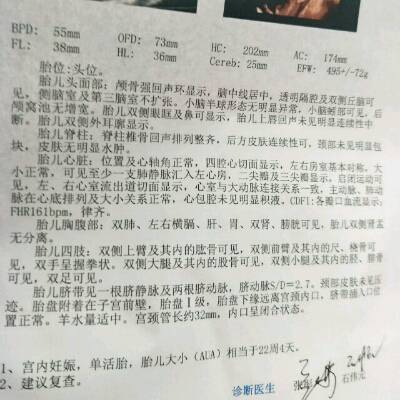 BPD: 55mm OFD: 73mm HC: 202mm AC: 174mm
FL: 38mm HL: 36mm Cereb: 25mm EFW: 495+/-72g
胎位:头位。
胎儿头面部:颅骨强回声环显示,脑中线居中,透明隔腔及双侧丘脑可
见,侧脑室及第三脑室不扩张。小脑半球形态无明显异常,小脑蚓部可见,后
颅窝池无增宽。胎儿双侧眼眶及鼻可显示,胎儿上唇回声未见明显连续性中
断。胎儿双侧外耳廓显示。
胎儿脊柱:脊柱椎骨回声排列整齐,后方皮肤连续性可,颈部未见明显包
块,皮肤无明显水肿。
胎儿心脏:位置及心轴角正常,四腔心切面显示,左右房室基本对称,大
小正常,可见至少一支肺静脉汇入左心房,二尖瓣及三尖瓣显示,启闭运动可
见,左、右心室流出道切面显示,心室与大动脉连接关系一致,主动脉、肺动
脉在心底排列及大小关系正常,心包腔未见明显积液。CDFI:各瓣口血流显示;
FHR161bpm,律齐。
胎儿胸腹部:双肺、左右横膈、肝、胃、双肾、膀胱可见,胎儿双侧肾盂
无分离。
胎儿四肢:双侧上臂及其内的肱骨可见,双侧前臂及其内的尺、桡骨可
见,双手呈握拳状。双侧大腿及其内的股骨可见,双侧小腿及其内的胫、腓骨
可见,双足可见。
胎儿脐带见一根脐静脉及两根脐动脉,脐动脉S/D=2.7。颈部皮肤未见压
迹。胎盘附着在子宫前壁,胎盘Ⅰ级,胎盘下缘远离宫颈内口,脐带插入口位
置正常。羊水量适中。宫颈管长约32mm,内口呈闭合状态。
1、宫内妊娠,单活胎,胎儿大小(AUA)相当于22周4天。
2、建议复查。
诊断医生 石伟元